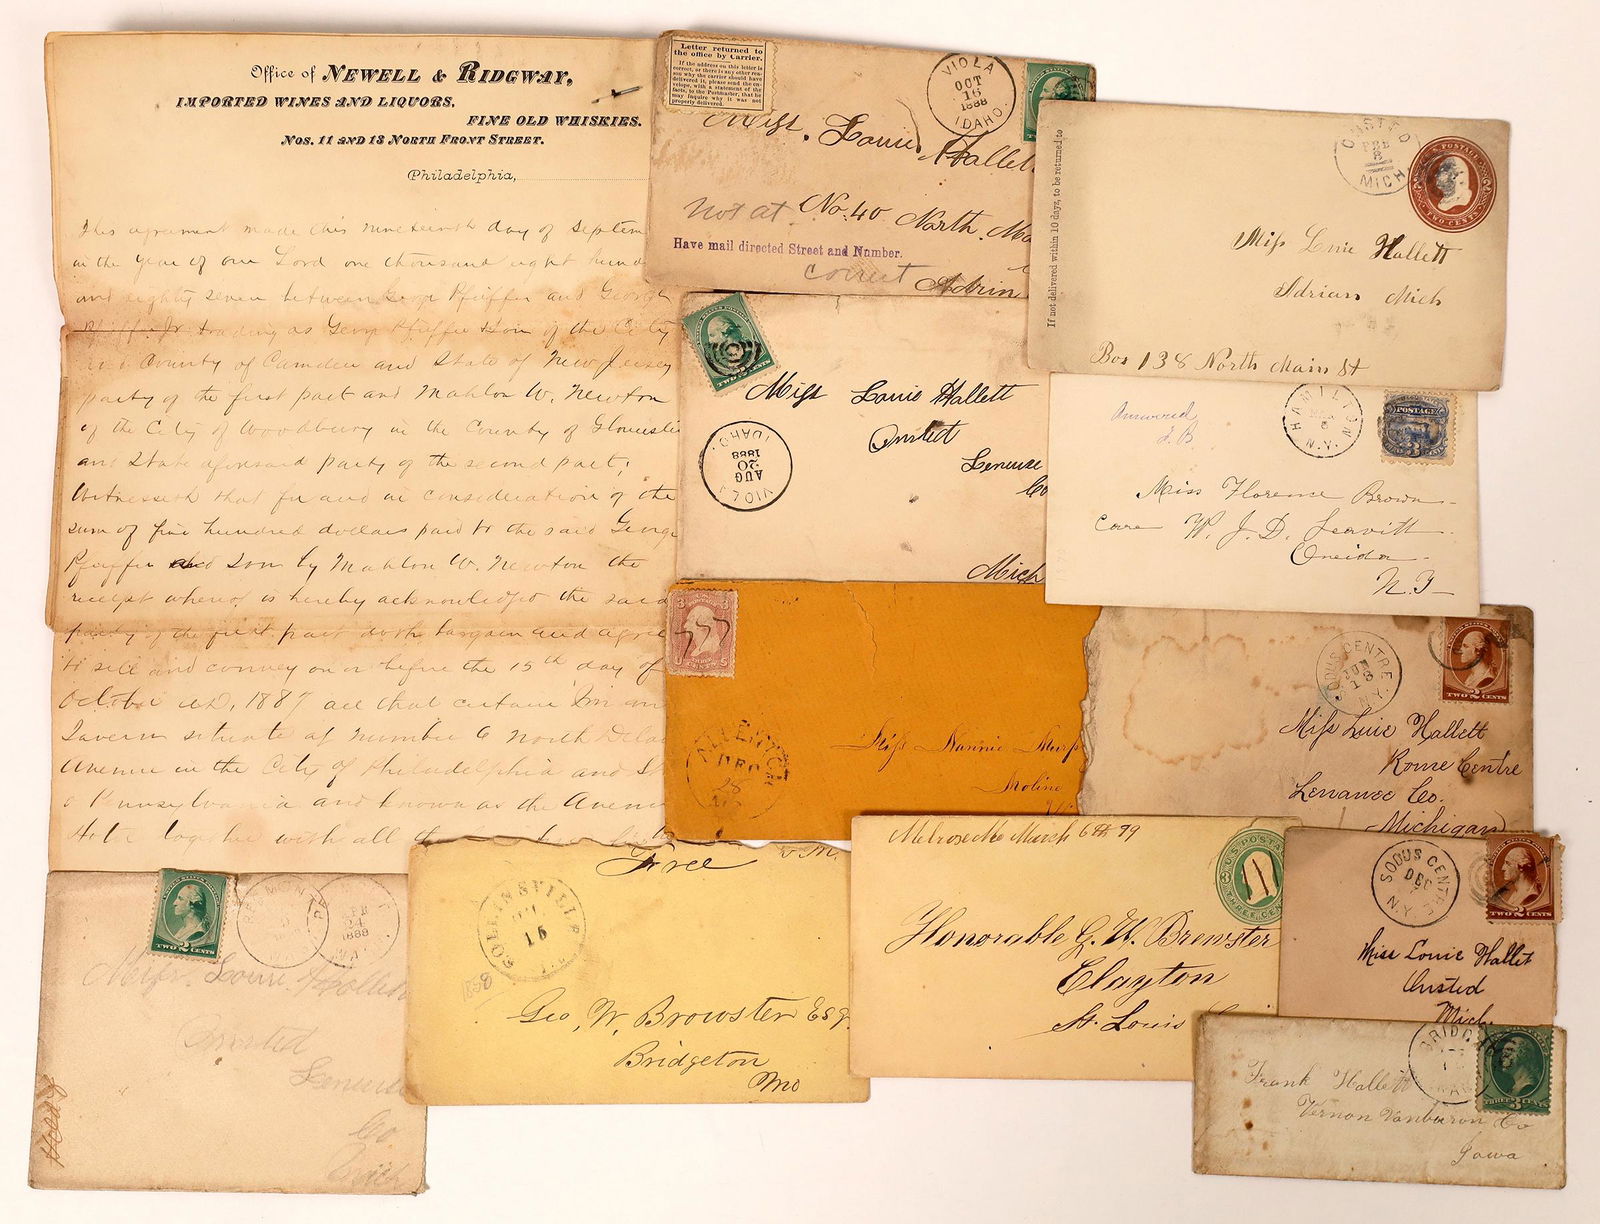 Office of NEWELL & RIDGWAY,
IMPORTED WINES AND LIQUORS,
FINE OLD WHISKIES.
NOS. 11 AND 13 NORTH FRONT STREET.
Philadelphia,
This agreement made this nineteenth day of Septem
in the year of our Lord one thousand eight hund
and eighty seven between George Pfeiffer and George
Pfeiffer Jr. trading as George Pfeiffer & Son of the City
and County of Camden and State of New Jersey
party of the first part and Mahlon W. Newton
of the City of Woodbury in the County of Glouceste
and State aforesaid party of the second part;
Witnesseth that for and in consideration of the
sum of five hundred dollars paid to the said George
Pfeiffer and Son by Mahlon W. Newton the
receipt whereof is hereby acknowledged the said
party of the first part doth bargain and agree
to sell and convey on or before the 15th day of
October AD, 1887 all that certain Inn an
Tavern situate at Number 6 North Dela
Avenue in the City of Philadelphia and St
of Pennsylvania and known as the Avenue
Hotel together with all
Letter returned to
the office by Carrier.
If the address on this letter is
correct, or there is any other rea-
son why the carrier should have
delivered it, please send the en-
velope, with a statement of the
facts, to the Postmaster, that he
may inquire why it was not
properly delivered.
VIOLA
OCT
16
1888
IDAHO.
Miss. Louie Hallett
not at No. 40 North. Ma
Have mail directed Street and Number.
correct
Adrin
If not delivered within 10 days, to be returned to
ONSTED
FEB
MICH
U.S. POSTAGE
TWO CENTS
Miss Louie Hallett
Adrian Mich
Box 138 North Main St
TWO 2 CENTS
VIOLA
AUG
20
1888
IDAHO
Miss Louie Hallett
Onsted
Lenuse
Co
Mich
Answered
F. B
HAMILTON
N.Y.
POSTAGE
3
Miss Florence Brown
Care W. J. D. Leavitt
Oneida
N.Y
3 3
U.S. POSTAGE
THREE CENTS
ALLENTOWN
DEC
28
Miss Nannie
Moline
SODUS CENTRE
JUN
13
N.Y.
TWO 2 CENTS
Miss Luie Hallett
Rome Centre
Lenawee Co.
Michigan
TWO 2 CENTS
FEB
24
1888
Miss. Louie Hallett
Onsted
Lenuse
Co
Mich
Free
COLLINSVILLE
15
1858
Geo. W. Browster Esq.
Bridgeton
Mo
Melrose Mo March 6th 79
U.S. POSTAGE
THREE CEN
Honorable G. W. Brewster
Clayton
St. Louis
SODUS CENTRE
DEC
N.Y.
TWO 2 CENTS
Miss Louie Hallet
Onsted
Mich.
THREE 3 CENTS
Frank Hallett
Vernon Vanburon Co
Iowa